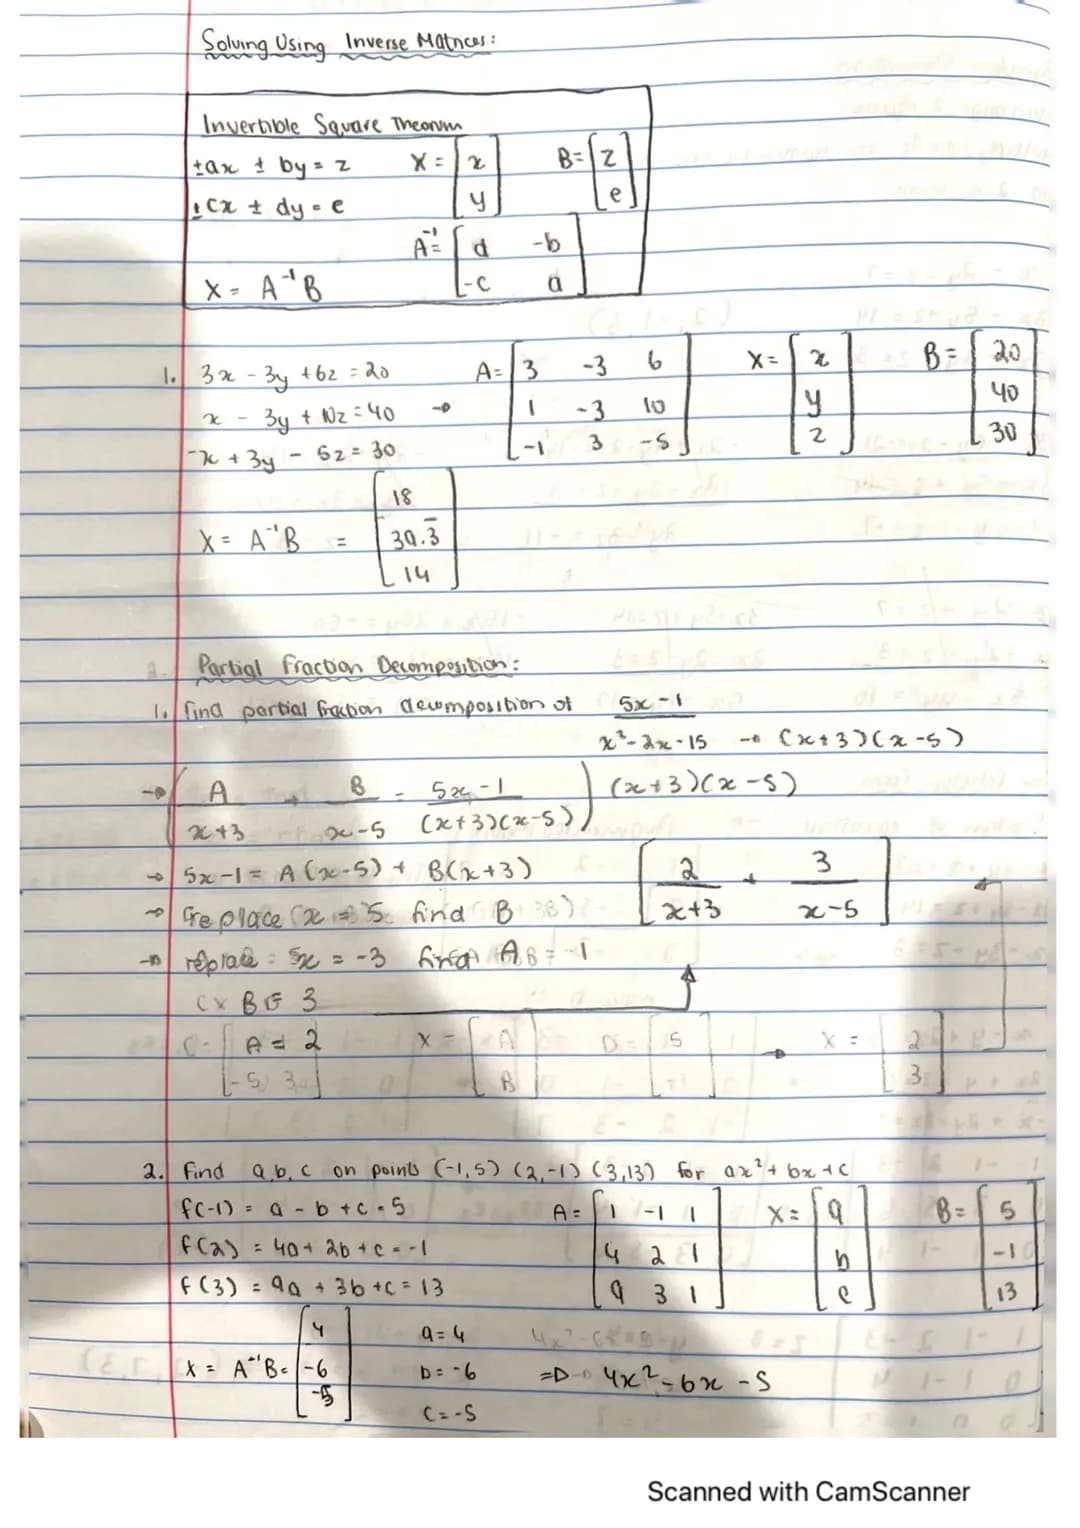 Solving Using Inverse Matrices:
Invertible Square Theorum
±ax ± by = z X = [x y] B = [z e]
±cx ± dy = e
A⁻¹ = [d -b -c a]
X = A⁻¹B
1. 3x - 3y + 6z = 20 A = [3 -3 6 1 -3 10 -1 3 -5] X = [x y z] B = [20 40 30]
x - 3y + 10z = 40 →
-x + 3y - 5z = 30
X = A⁻¹B = [18 39.3̅ 14]
2. Partial Fraction Decomposition:
1. find partial fraction decomposition of 5x-1
x²-2x-15 → (x+3)(x-5)
→ (A/x+3 + B/x-5 = 5x-1/(x+3)(x-5)) (x+3)(x-5)
→ 5x-1 = A(x-5) + B(x+3) [2/x+3 + 3/x-5]
→ replace x = 5 find B
→ replace x = -3 find A
B = 3
A = 2 X = [A B] X = [2 3]
2. Find a,b,c on points (-1,5) (2,-1) (3,13) for ax²+bx+c
f(-1) = a - b + c = 5 A = [1 -1 1 4 2 1 9 3 1] X = [a b c] B = [5 -1 13]
f(2) = 4a + 2b + c = -1
f(3) = 9a + 3b + c = 13
X = A⁻¹B = [4 -6 -5] a = 4
b = -6 => 4x² - 6x - 5
c = -5
Scanned with CamScanner